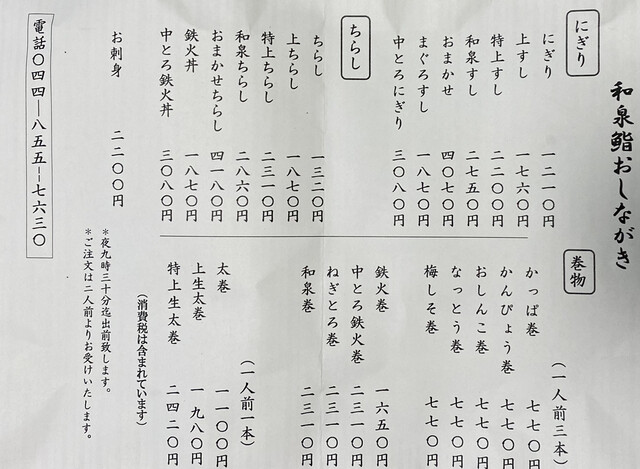 和泉鮨おしながき
にぎり
にぎり 一二一〇円
上すし 一七六〇円
特上すし 二二〇〇円
和泉すし 二七五〇円
おまかせ 四〇七〇円
まぐろすし 一八七〇円
中とろにぎり 三〇八〇円
ちらし
ちらし 一三二〇円
上ちらし 一八七〇円
特上ちらし 二三一〇円
和泉ちらし 二八六〇円
おまかせちらし 四一八〇円
鉄火丼 一八七〇円
中とろ鉄火丼 三〇八〇円
お刺身 二二〇〇円
巻物
(一人前三本)
かっぱ巻 七七〇円
かんぴょう巻 七七〇円
おしんこ巻 七七〇円
なっとう巻 七七〇円
梅しそ巻 七七〇円
鉄火巻 一六五〇円
中とろ鉄火巻 二三一〇円
ねぎとろ巻 二三一〇円
和泉巻 二三一〇円
(一人前一本)
太巻 一一〇〇円
上生太巻 一九八〇円
特上生太巻 二四二〇円
(消費税は含まれています)
*夜九時三十分迄出前致します。
*ご注文は二人前よりお受けいたします。
電話〇四四―八五五―七六三〇